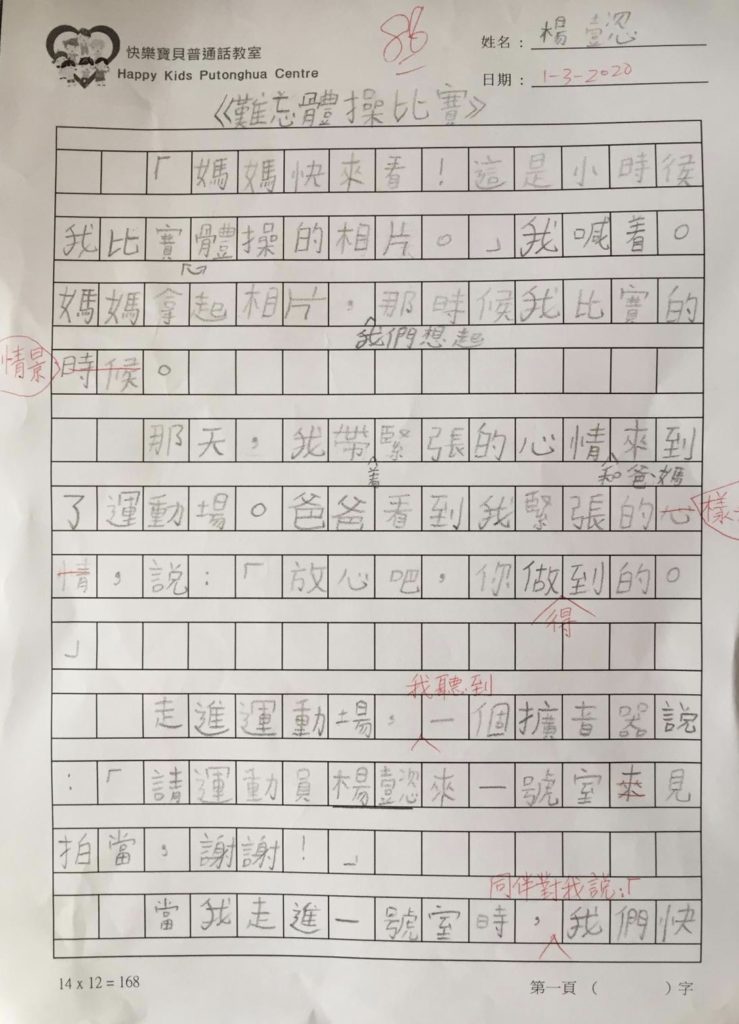 快樂寶貝普通話教室
Happy Kids Putonghua Centre
86
姓名：楊壹
日期：1-3-2020
《難忘體操比賽》
「媽媽快來看！這是小時候
我比賽體操的相片。」我喊着。
媽媽拿起相片，那時候我比賽的
我們想起
情景
時候。
那天，我帶緊張的心情來到
着
和爸媽
了運動場。爸爸看到我緊張的心
樣
情，說：「放心吧，你做到的。
得
」
我聽到
走進運動場，一個擴音器說
：「請運動員楊壹來一號室來見
拍當，謝謝！」
同伴對我說：「
當我走進一號室時，我們快
14 x 12 = 168
第一頁 （ ）字